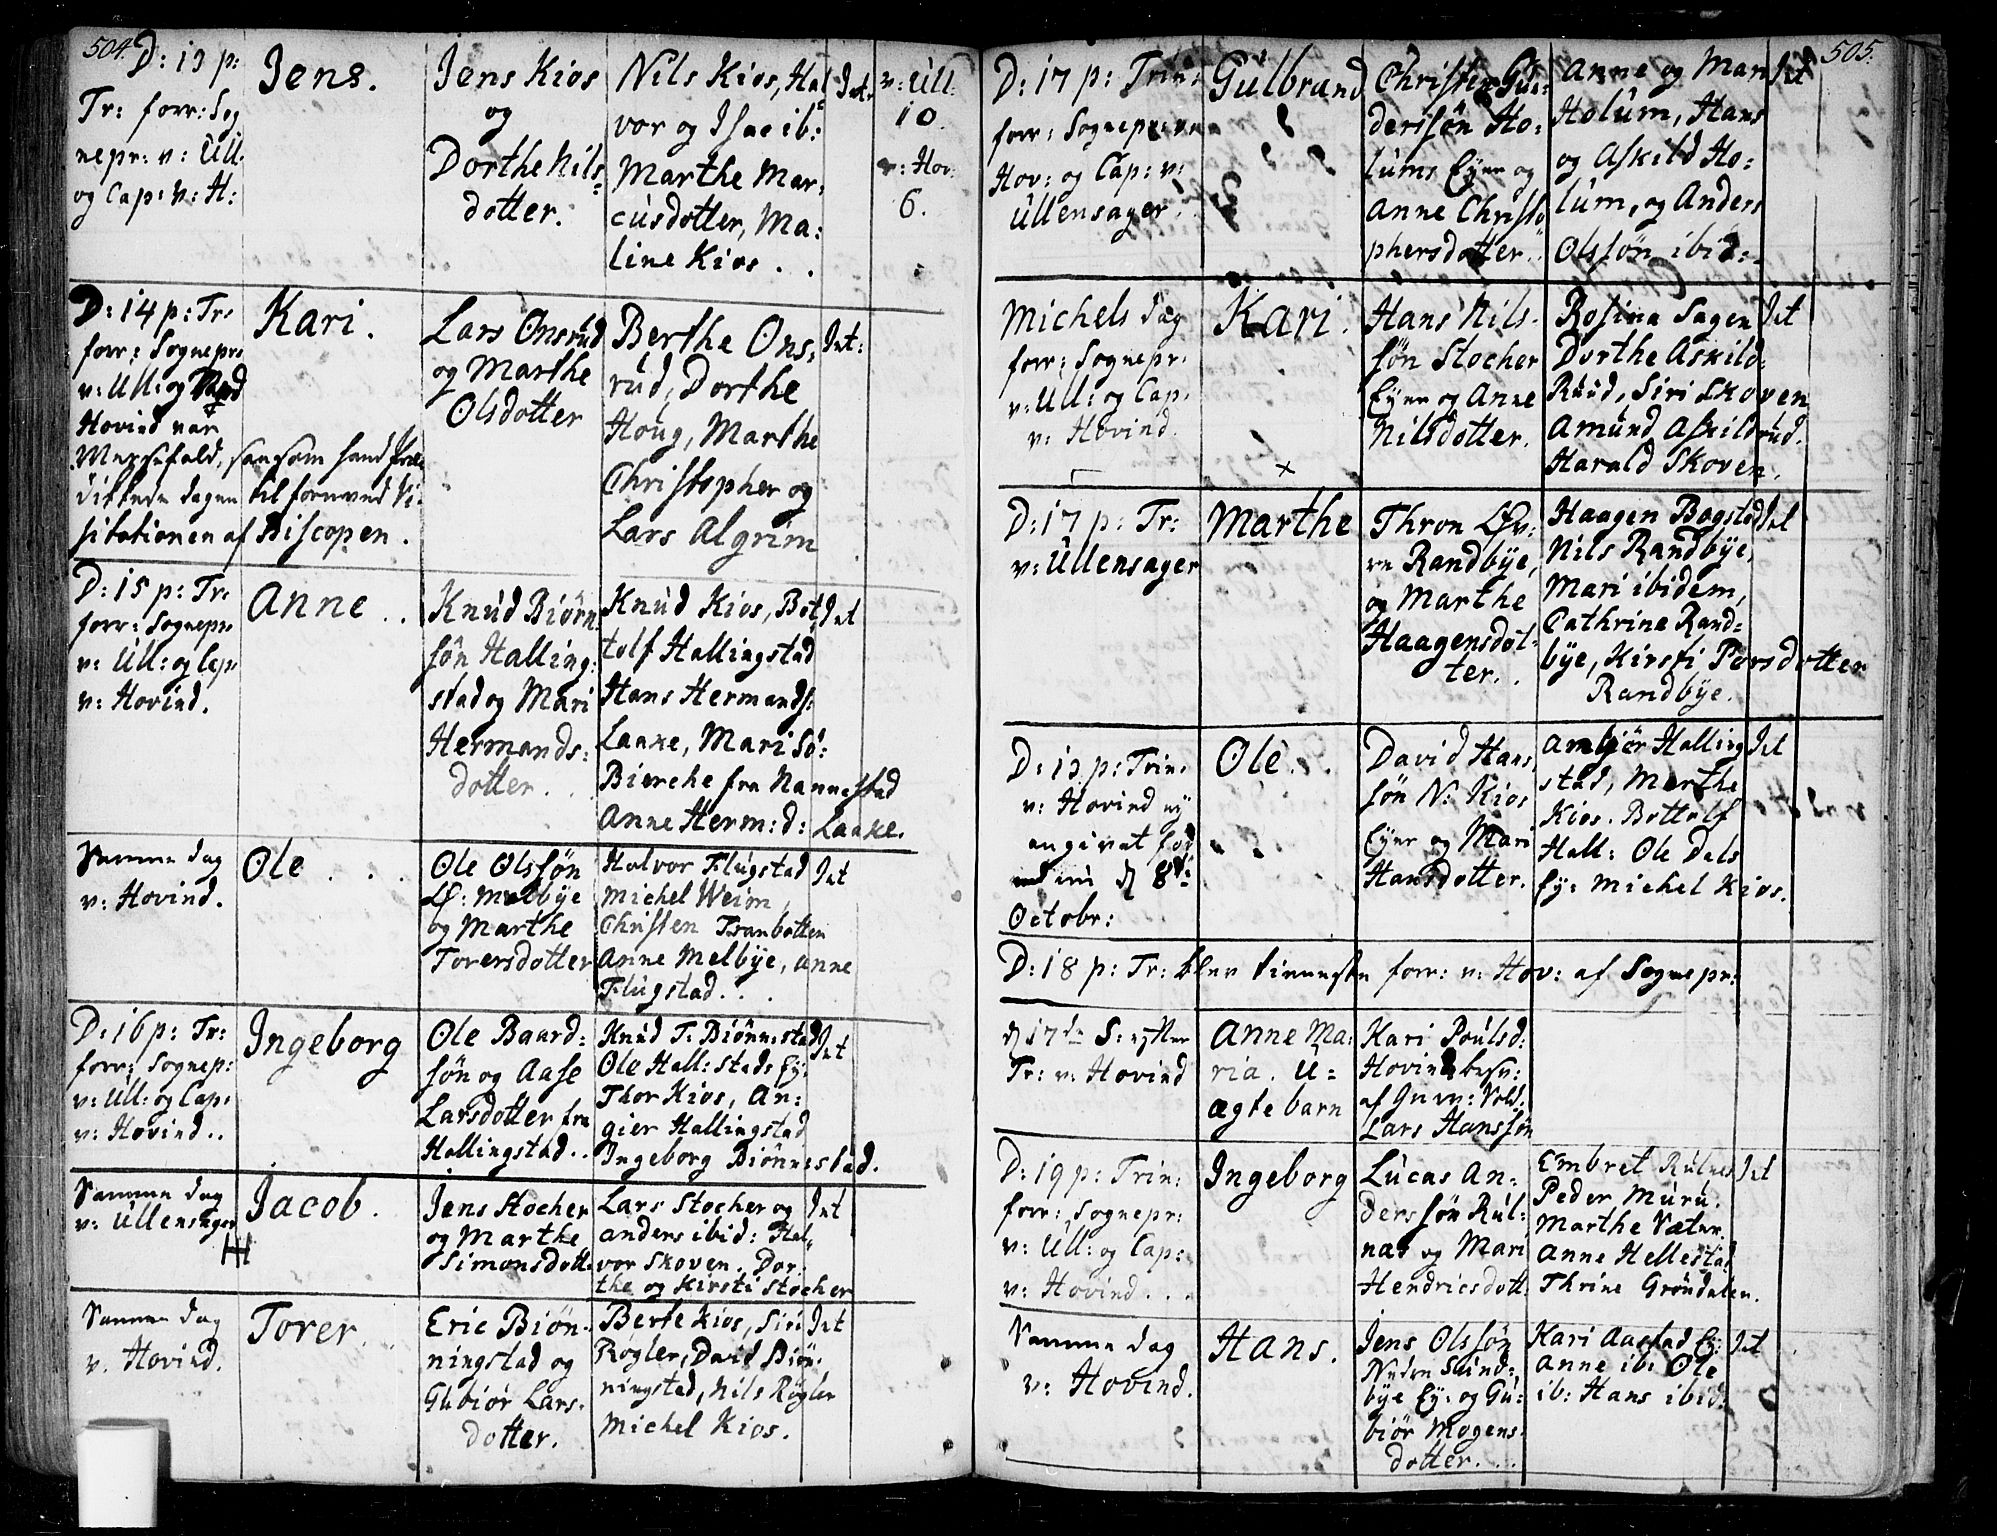 504.
D: 13 p:
Tr: forr: Sog
nepr: v: Ull.
og Cap: v: H:
Jens.
Jens Kios
og
Dorthe Nils-
dotter.
Nils Kios, Hal
vor og Isac ib:
Marthe Mar-
cusdotter, Ma-
line Kios . .
Int.
v: Ull:
10.
v: Hov:
6.
D: 14 p: Tr:
forr: Sognepr:
v: Ull: og
Hovind var
Messefald, saasom hand
dittede dagen til forn
sitationen af Biscopen.
Kari.
Lars Onsrud
og Marthe
Olsdotter
Berthe Ons-
rud, Dorthe
Houg, Marthe
Christopher og
Lars Algrim
Int:
D: 15 p: Tr:
forr: Sognepr:
v: Ull: og Cap:
v: Hovind.
Anne . .
Knud Biörn
sön Halling-
stad og Mari
Hermands-
dotter . .
Knud Kios, Bot
tolf Hallingstad
Hans Hermands:
Laake, Mari Sö:
Bierche fra Nannestad
Anne Herm: d: Laake.
Int
Samme dag
v: Hovind.
Ole . . .
Ole Olssön
Ø: Melbye
og Marthe
Torersdotter
Halvor Flugstad
Michel Weim,
Christen Tranbotten
Anne Melbye, Anne
Flugstad . .
Int
D: 16 p: Tr:
forr: Sognepr:
v: Ull: og Cap:
v: Hovind..
Ingeborg
Ole Baard-
sön og Aase
Larsdotter fra
Hallingstad..
Knud T. Biönnestad
Ole Hall: stads Ey:
Thor Kios, An-
gier Hallingstad
Ingeborg Biönnestad.
Int
Samme dag
v: Ullensager
Jacob.
Jens Stocher
og Marthe
Simonsdott:
Lars Stocher og
Anders ibid: Hal-
vor Skoven. Dor-
the og Kirsti Stocher
Int
Samme dag
v. Hovind.
Torer.
Eric Biön-
ningstad og
Gubiör Lars-
dotter.
Berte Kios, Siri
Rögler, David Biön-
ningstad, Nils Rögler
Michel Kios.
Int
505.
D: 17 p: Trin:
forr: Sognepr:
Hov: og Cap: v:
Ullensager.
Gulbrand
Christen Gun-
derssön Ho-
lums Eyer og
Anne Christo
phersdotter.
Anne og Mari
Holum, Hans
og Askild Ho-
lum, og Anders
Olssön ibid:
Int
Michels dag
forr: Sognepr:
v: Ull: og Cap.
v: Hovind.
Kari.
Hans Nils-
sön Stocher
Eyer og Anne
Nilsdotter.
Rosina Sagen
Dorthe Askild-
Ruud, Siri Skoven
Amund Askildrud.
Harald Skoven.
Int
D: 17 p: Tr:
v: Ullensager
Marthe
Thron Øv-
re Randbye,
og Marthe
Haagensdot-
ter.
Haagen Bogstad
Nils Randbye,
Mari ibidem,
Cathrine Rand-
bye, Kirsti Persdotter
Randbye.
Int
D: 13 p: Trin:
v: Hovind ey
angivet för
end nu d 8de
Octobr:
Ole . .
David Hans
sön N: Kios
Eyer og Mari
Hansdotter.
Ambiör Halling
stad, Marthe
Kios. Bottolf
Hall: Ole Dals
Ey: Michel Kios.
Int
D: 18 p: Tr: blev tienneste forr: v: Hov: af Sognepr:
d 17de S: efter
Tr: v: Hovind
Anne Ma-
ria. U-
ægte barn
Kari Poulsd:
Hovind besv:
af Gevor: Sold:
Lars Hanssön
D: 19 p: Trin:
forr: Sognepr:
v: Ull: og Cap:
v: Hovind . . .
Ingeborg
Lucas An-
derssön Rul-
nas og Mari
Hendricsdott:
Embret Rulnes
Peder Muru.
Marthe Sæter.
Anne Hellestad
Thrine Gröndalen.
Int
Samme dag
v: Hovind.
Hans.
Jens Olssön
Nedre Sund-
bye Ey: og Gu-
biör Mogens-
dotter. . .
Kari Aastad Ey:
Anne ib: Ole
ib: Hans ibid:
Int